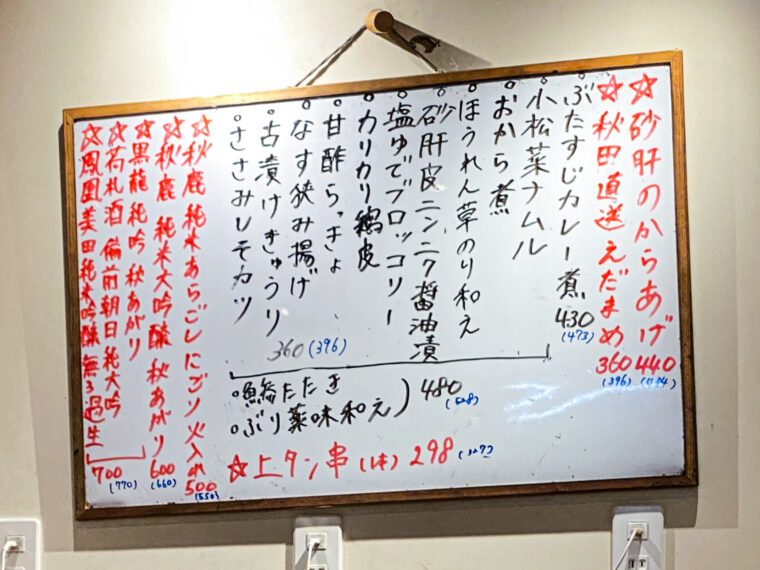 ☆砂肝のからあげ 440 (484)
☆秋田直送えだまめ 360 (396)
。ぶたすじカレー煮 430 (473)
。小松菜ナムル
。おから煮
。ほうれん草のり和え
。砂肝皮ニンニク醤油漬
。塩ゆでブロッコリー
。カリカリ鶏皮
。甘酢らっきょ
。なす挟み揚げ
。古漬けきゅうり
。ささみしそカツ
360 (396)
。鯵たたき
。ぶり薬味和え) 480 (528)
☆上タン串(1本) 298 (327)
☆秋鹿 純米あらごしにごり 火入れ 500 (550)
☆秋鹿 純米大吟醸 秋あがり 600 (660)
☆黒龍 純吟 秋あがり
☆荷札酒 備前朝日純大吟
☆鳳凰美田純米吟醸 無ろ過生
700 (770)